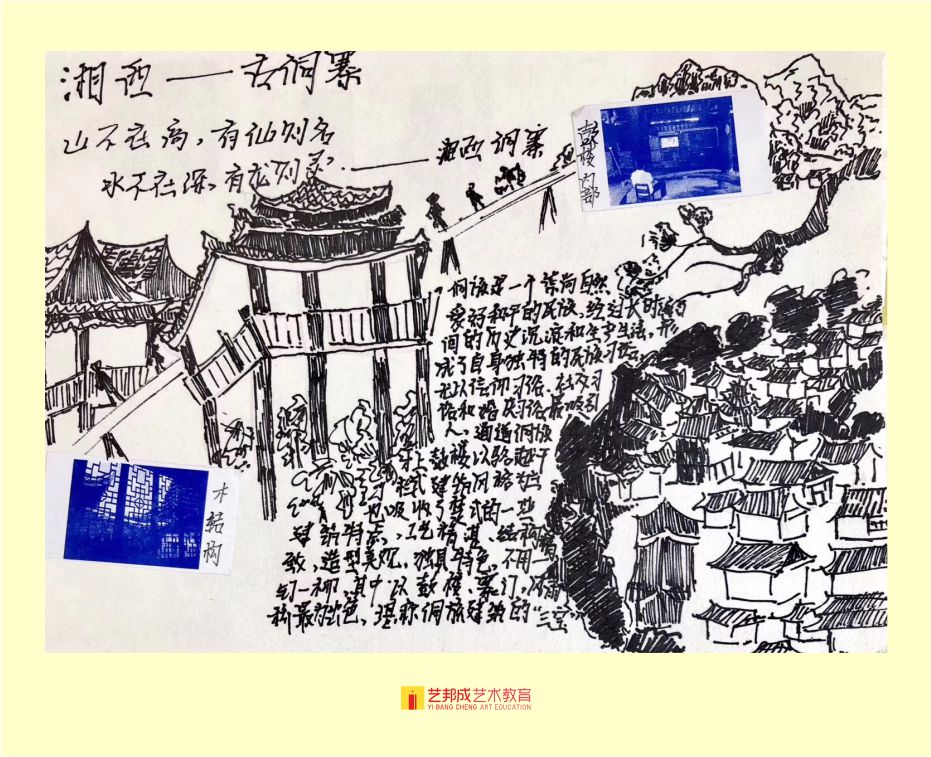 湘西——古侗寨
山不在高，有仙则名
水不在深，有龙则灵.——湘西侗寨
鼓楼内部
侗族是一个崇尚自然
爱好和平的民族，经过长时
间的历史沉淀和生产生活，形
成了自身独特的民族习俗，
尤以信仰习俗，社交习
俗和婚庆习俗最吸引
人，通道侗族
鼓楼以
式建筑风格
也吸收了 式的一些
建筑特点，工艺精湛，结构
致，造型美观，独具特色，不用一
钉一柳，其中以鼓楼，寨门，风雨
桥最出色，堪称侗族建筑的"三宝
木结构
艺邦成艺术教育
YI BANG CHENG ART EDUCATION